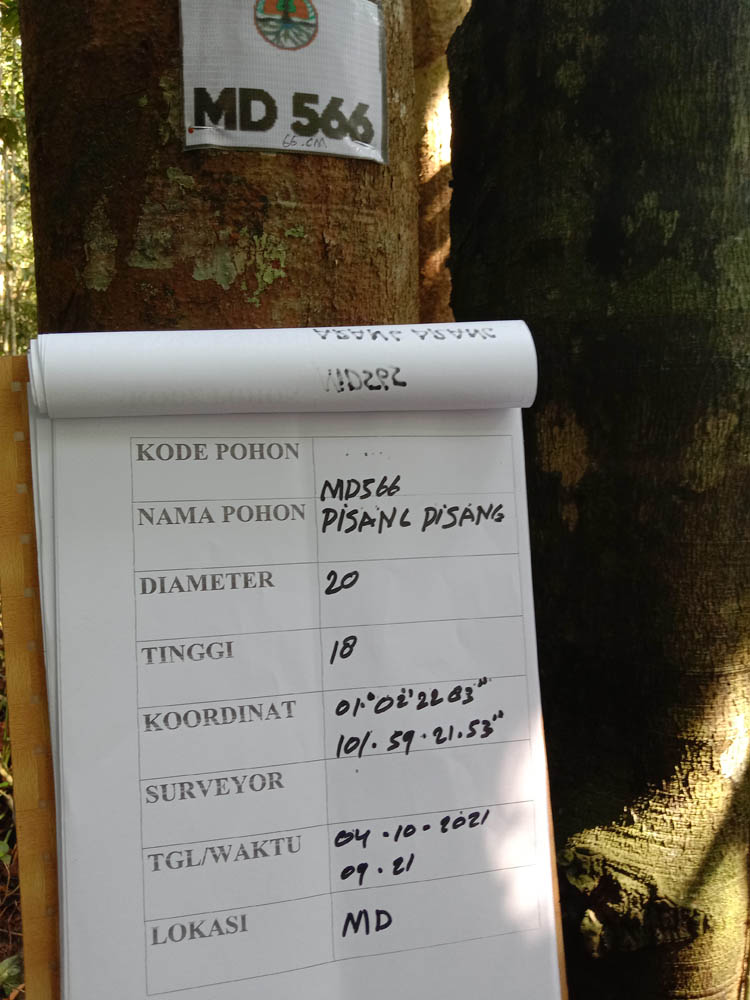 MD 566
66.CM
KODE POHON
MD566
NAMA POHON PISANG PISANG
DIAMETER 20
TINGGI 18
KOORDINAT 01.° 02' 22 83"
101. 59. 21. 53"
SURVEYOR
TGL/WAKTU 04.10.2021
09.21
LOKASI MD